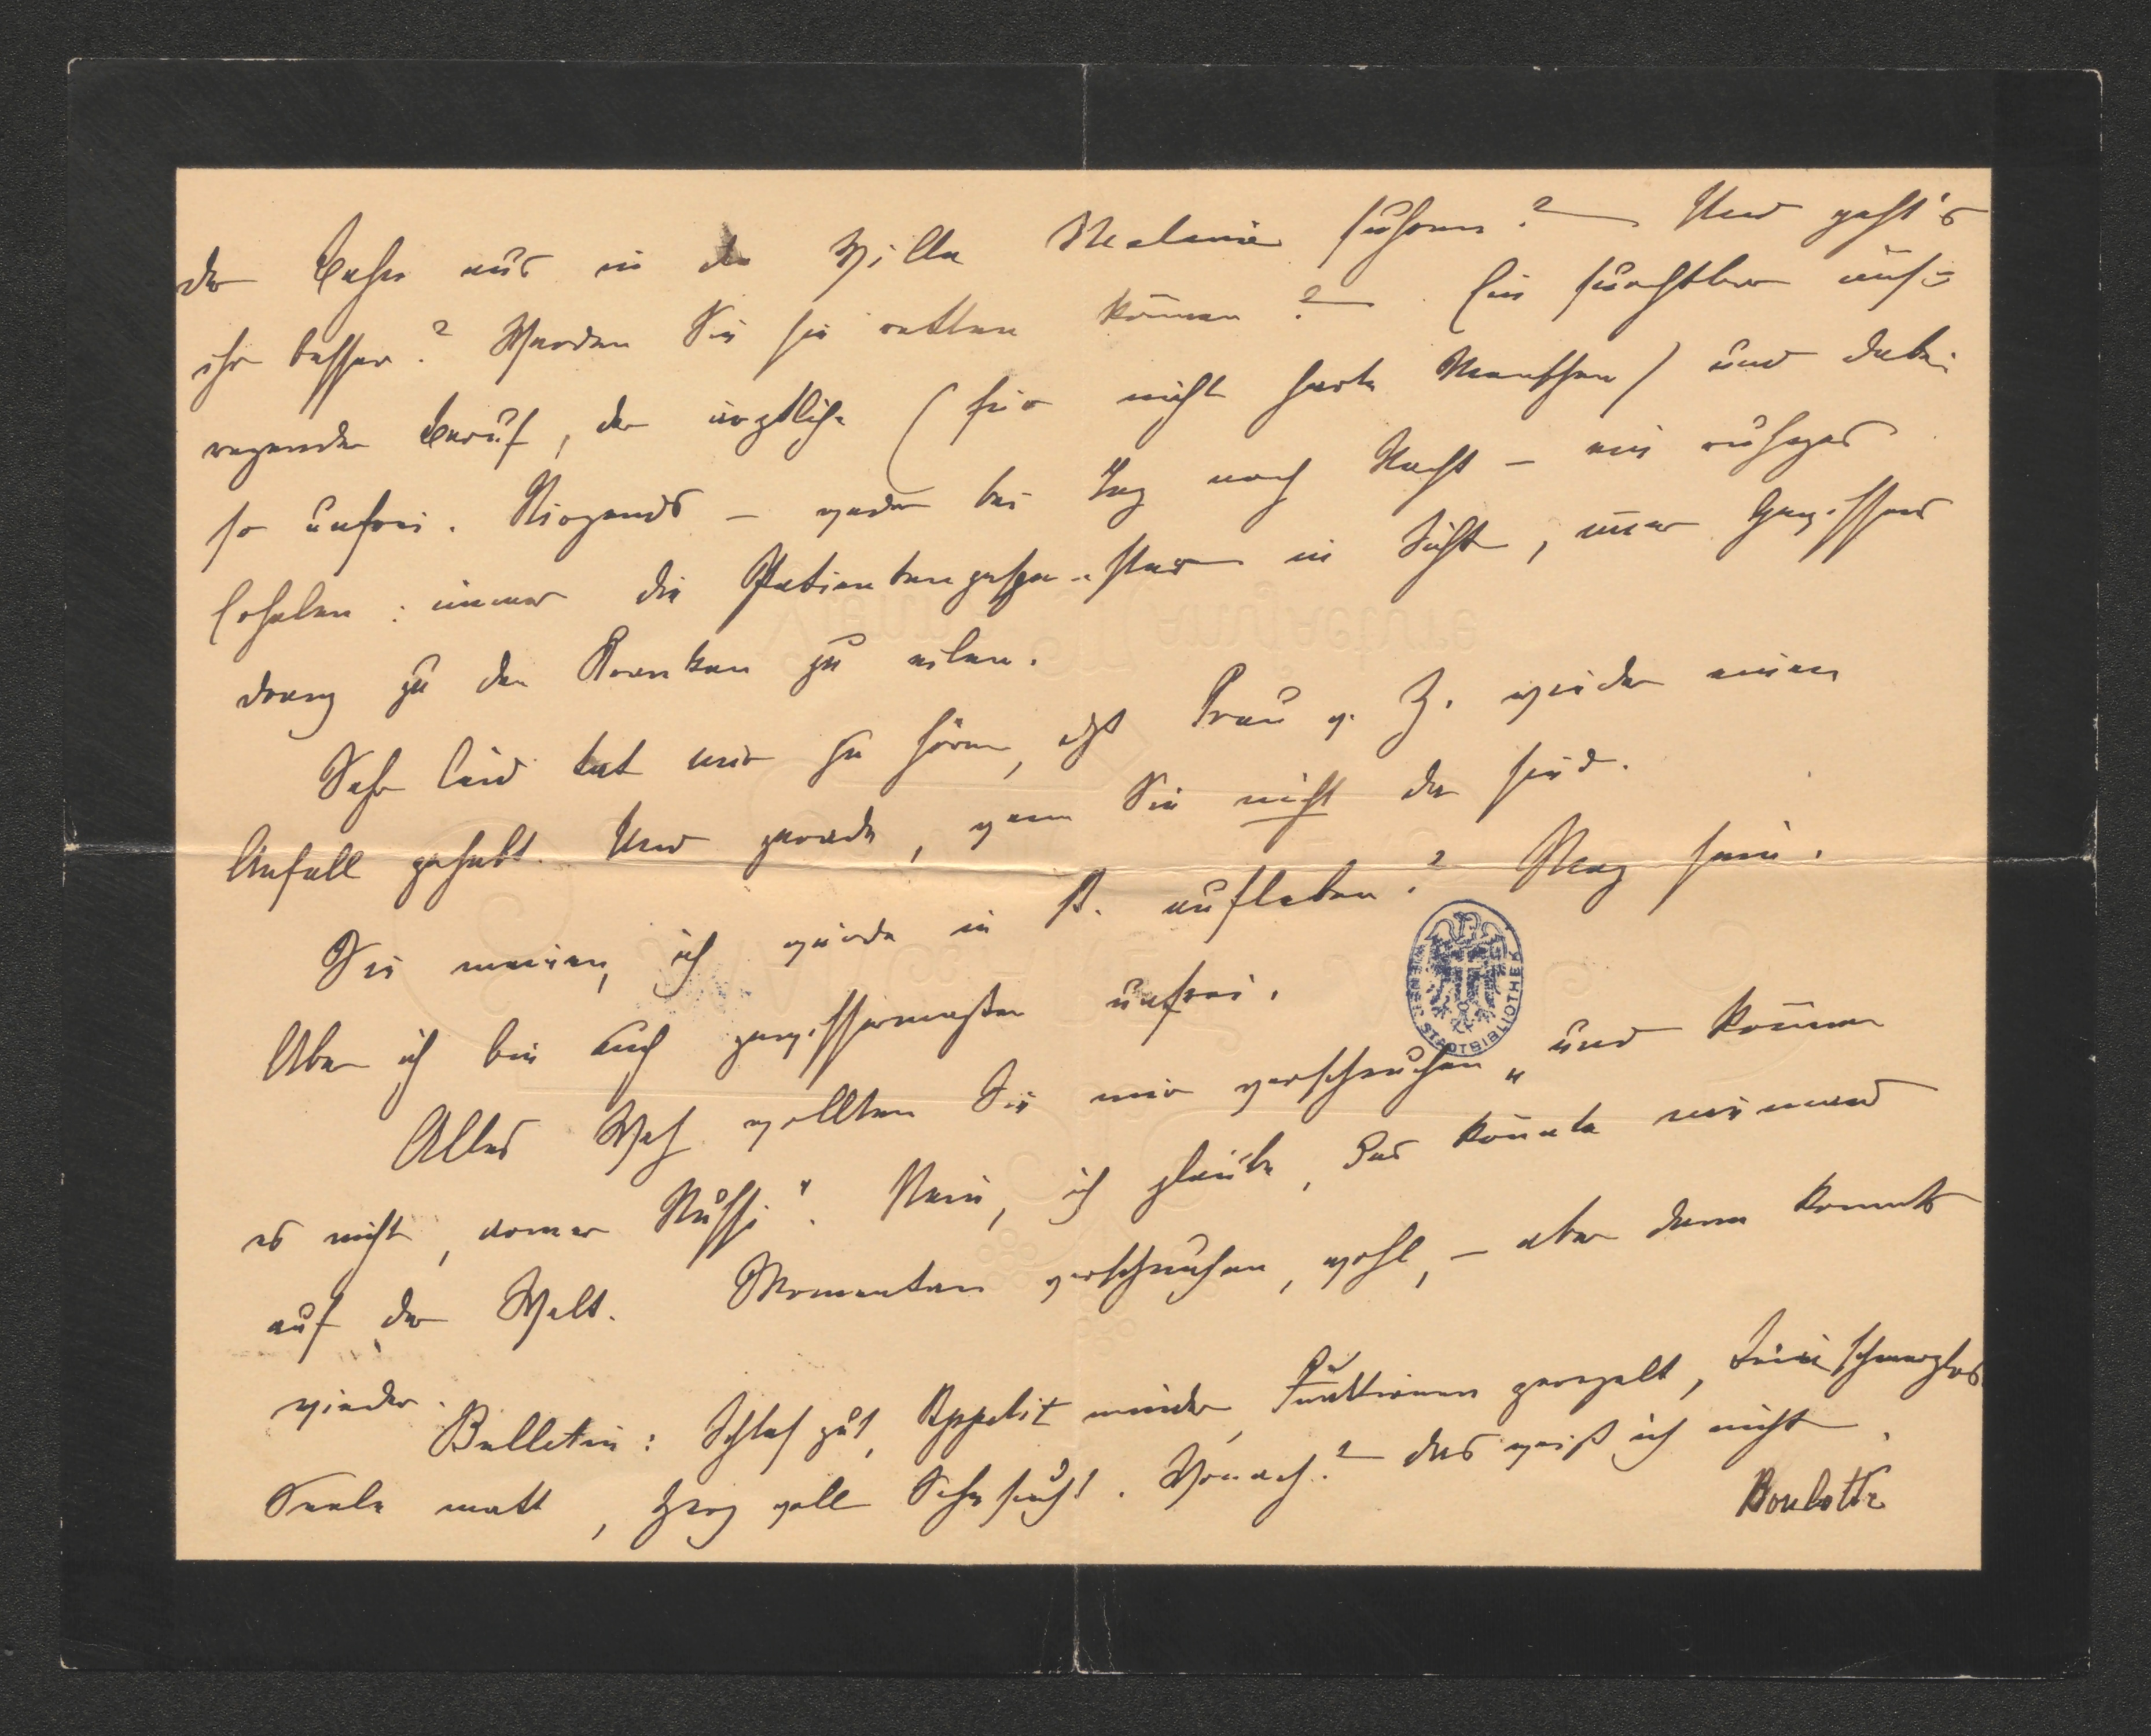 der Bahn aus in die Villa Melanie fuhren? — Und geht's
ihr besser? Werden Sie sie retten können? — Ein furchtbar auf=
regender Beruf, der ärztliche (für nicht harte Menschen) und dabei
so unfrei. Nirgends — weder bei Tag noch Nacht — ein ruhiges
Erholen: immer die Patientengespenster in Sicht, immer Gewissens
drang zu den Kranken zu eilen.
Sehr leid tat mir zu hören, dß Frau v. Z. wieder einen
Anfall gehabt. Und gerade, wenn Sie nicht da sind.
Sie meinen, ich würde in St. aufleben? Mag sein.
Aber ich bin auch gewissermaßen unfrei.
Alles Weh wollten Sie mir verscheuchen „und können
es nicht, armer Nussi". Nein, ich glaube, das könnte niemand
auf der Welt. Momentan verscheuchen, wohl, — aber dann kommts
wieder.
Bulletin: Schlaf gut, Appetit minder, Funktionen geregelt, schmerzlos
Seele matt, Herz voll Sehnsucht. Wonach? — das weiß ich nicht.
Boulotte
WIENER STADTBIBLIOTHEK